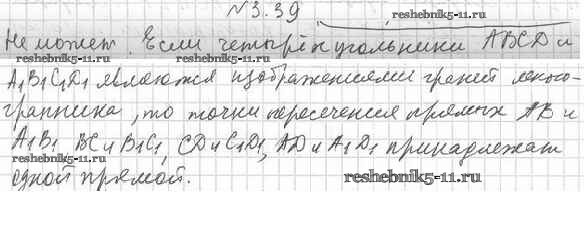 №3.39
reshebnik5-11.ru
Не может. Если четырёхугольники ABCD и
reshebnik5-11.ru
A₁B₁C₁D₁ являются изображениями граней много-
гранника, то точки пересечения прямых AB и
A₁B₁, BC и B₁C₁, CD и C₁D₁, AD и A₁D₁ принадлежат
reshebnik5-11.ru
одной прямой.
reshebnik5-11.ru